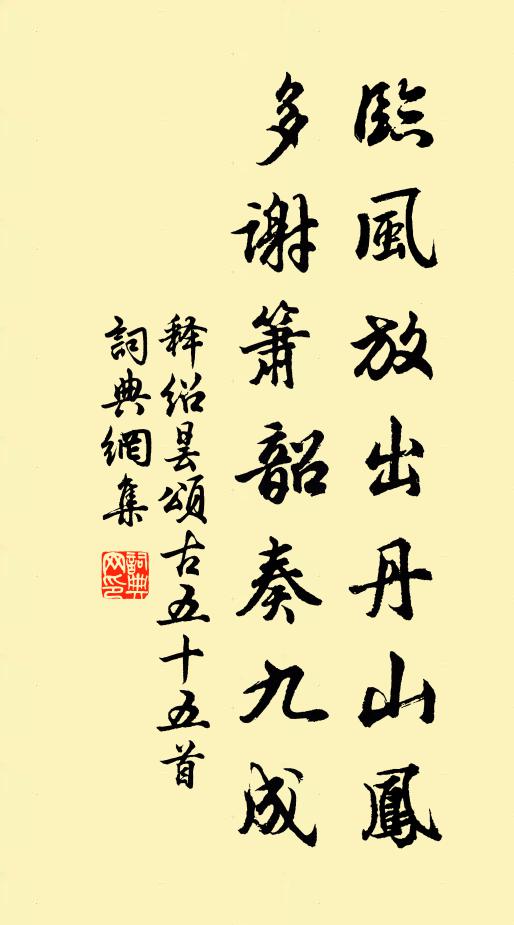 臨風放出丹山鳳
多謝簫韶奏九成
释紹曇頌古五十五首
詞典網集
詞典
网印